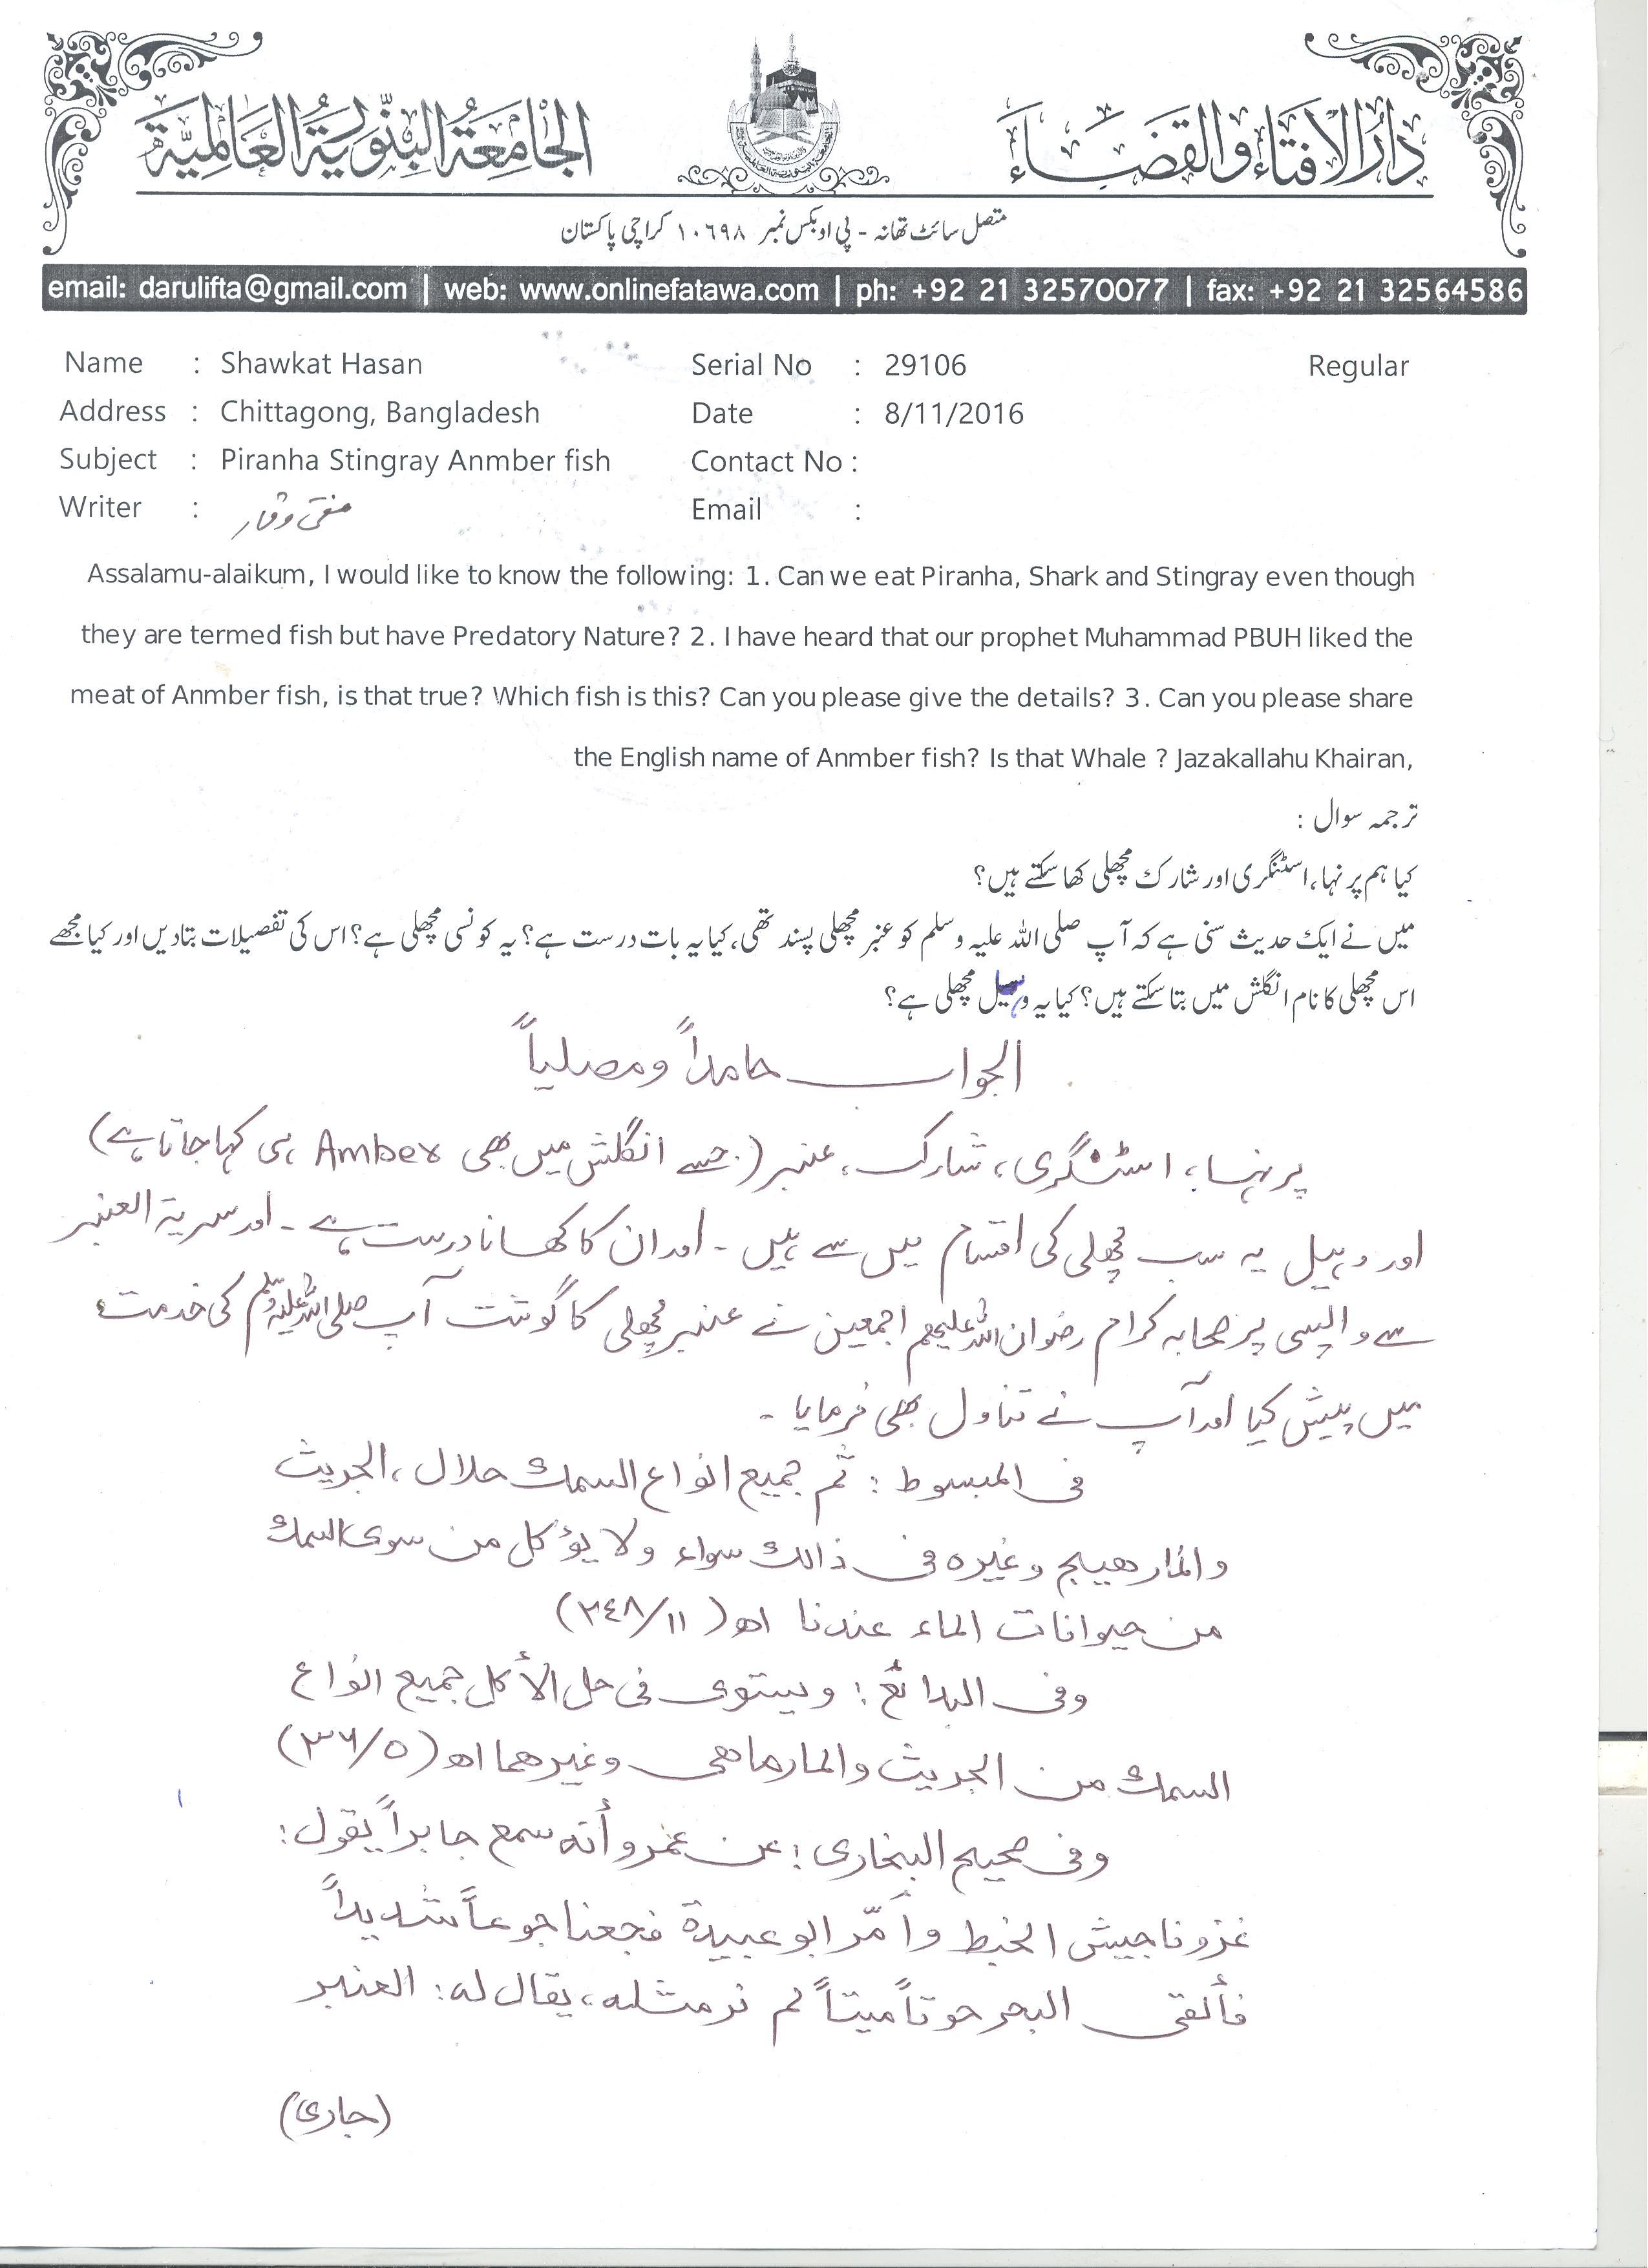 دَارُ الْاِفْتَاءِ وَالْقَضَاءِ
اَلْجَامِعَةُ الْبِنُّوْرِيَّةُ الْعَالَمِيَّة
متصل سائٹ تھانہ - پی او بکس نمبر ۱۰۶۹۸ کراچی پاکستان
email: darulifta@gmail.com | web: www.onlinefatawa.com | ph: +92 21 32570077 | fax: +92 21 32564586
Name : Shawkat Hasan Serial No : 29106 Regular
Address : Chittagong, Bangladesh Date : 8/11/2016
Subject : Piranha Stingray Anmber fish Contact No :
Writer : مفتی وقار Email :
Assalamu-alaikum, I would like to know the following: 1. Can we eat Piranha, Shark and Stingray even though
they are termed fish but have Predatory Nature? 2. I have heard that our prophet Muhammad PBUH liked the
meat of Anmber fish, is that true? Which fish is this? Can you please give the details? 3. Can you please share
the English name of Anmber fish? Is that Whale ? Jazakallahu Khairan,
ترجمہ سوال :
کیا ہم پرنہا، اسٹنگری اور شارک مچھلی کھا سکتے ہیں؟
میں نے ایک حدیث سنی ہے کہ آپ صلی اللہ علیہ وسلم کو عنبر مچھلی پسند تھی، کیا یہ بات درست ہے؟ یہ کونسی مچھلی ہے؟ اس کی تفصیلات بتادیں اور کیا مجھے
اس مچھلی کا نام انگلش میں بتا سکتے ہیں؟ کیا یہ وہیل مچھلی ہے؟
الجواب حامداً ومصلیاً
پرنہا، اسٹنگری، شارک، عنبر (جسے انگلش میں بھی Amber ہی کہا جاتا ہے)
اور وہیل یہ سب مچھلی کی اقسام میں سے ہیں ۔ اور ان کا کھانا درست ہے ۔ اور سریۃ العنبر
سے واپسی پر صحابہ کرام رضوان اللہ علیہم اجمعین نے عنبر مچھلی کا گوشت آپ صلی اللہ علیہ وسلم کی خدمت
میں پیش کیا اور آپ نے تناول بھی فرمایا ۔
فی المبسوط : ثم جمیع انواع السمك حلال ، الجریث
والمارهیج وغیره فی ذالك سواء ولا یؤکل من سوی السمك
من حیوانات الماء عندنا اھ (٢٤٨/١١)
وفی البدائع : ویستوی فی حل الأکل جمیع انواع
السمك من الجریث والمارماهی وغیرهما اھ (٣٦/٥)
وفی صحیح البخاری : عن عمرو أنه سمع جابراً یقول :
غزونا جیش الخبط وأمّر ابو عبیدة فجعنا جوعاً شدیداً
فألقی البحر حوتاً میتاً لم نر مثله ، یقال له : العنبر
(جاری)